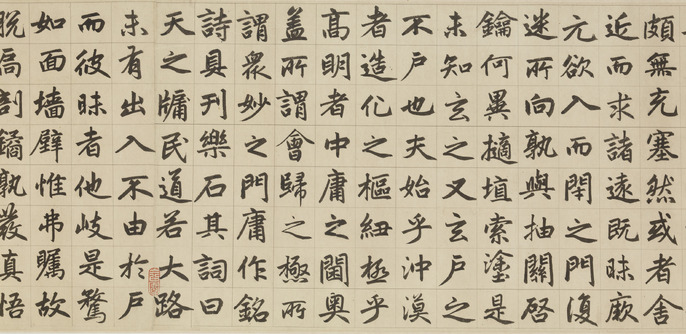 頗無充塞然或者舍
近而求諸遠既昧厥
元欲入而閉之門復
迷所向孰與抽關啓
鑰何異擿埴索塗是
未知玄之又玄戶之
不戶也夫始乎沖漠
者造化之樞紐極乎
髙明者中庸之閫奥
盖所謂會歸之極所
謂衆妙之門庸作銘
詩具刊樂石其詞曰
天之牖民道若大路
未有出入不由於戶
而彼昧者他岐是騖
如面墻壁惟弗矚故
脫扃剖鐍孰發真悟